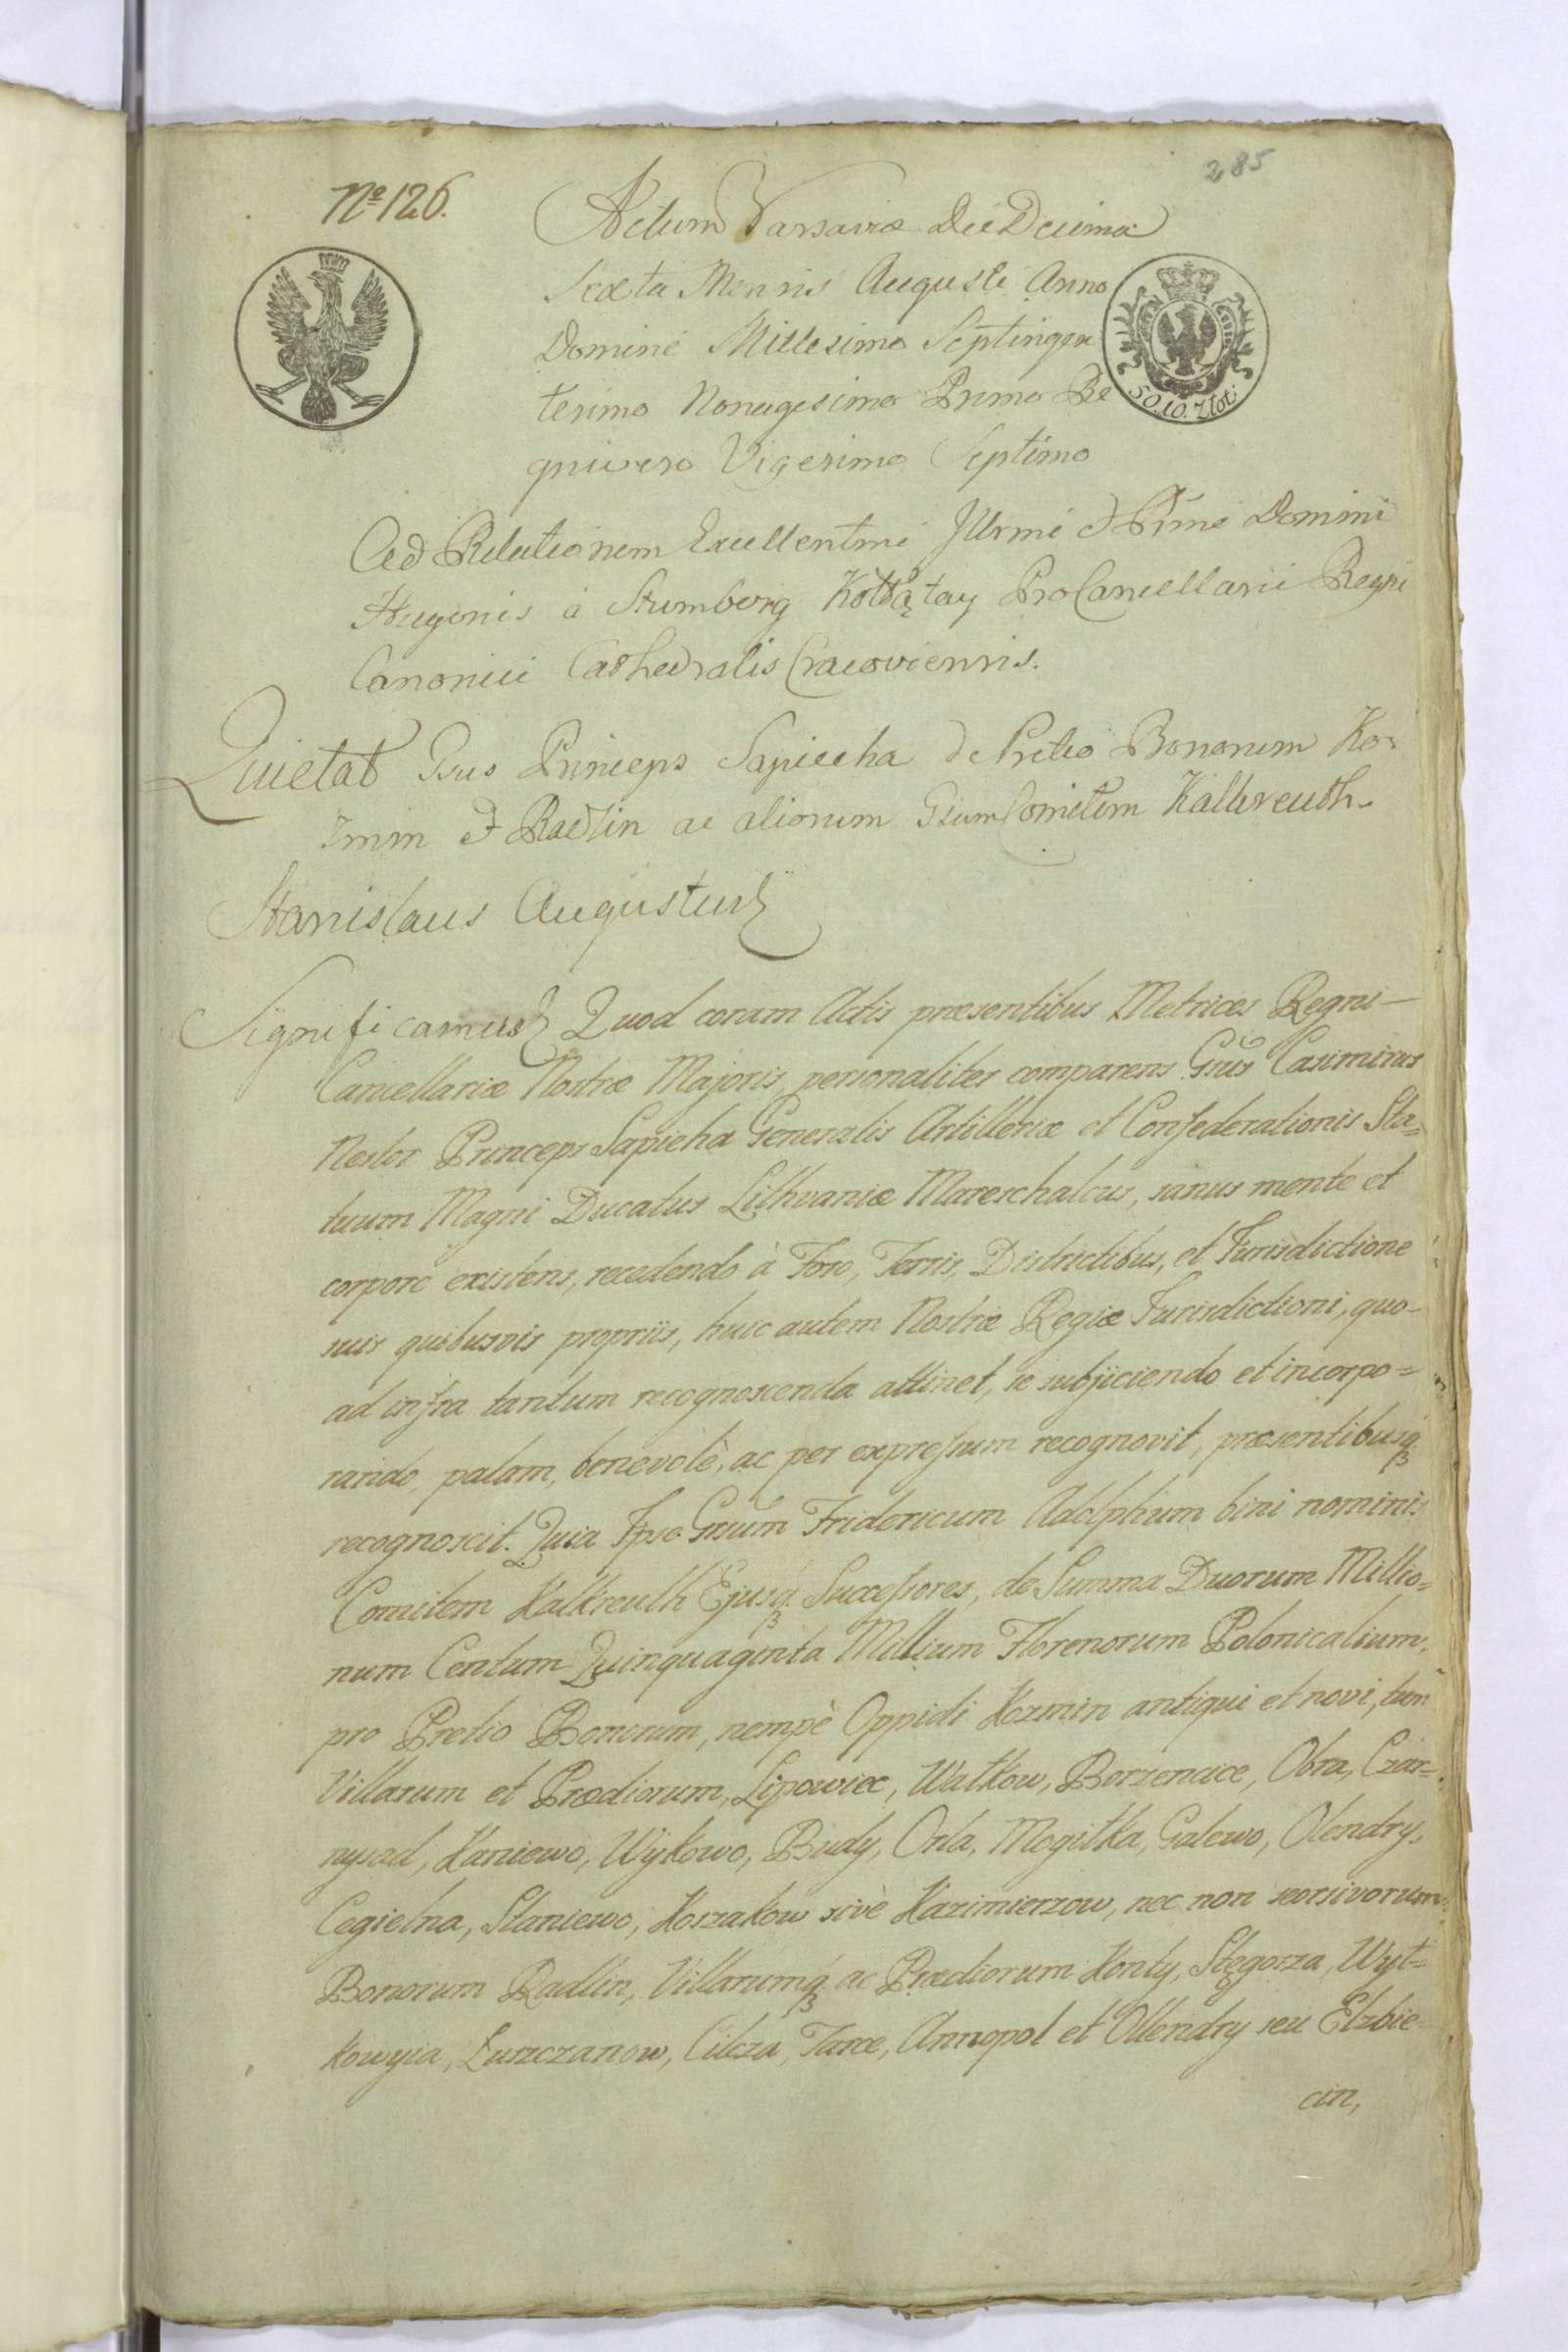 285
Nº 126.
Actum Varsaviæ Die Decima
Sexta Mensis Augusti Anno
Domini Millesimo Septingen
tesimo Nonagesimo Primo Re
gnivero Vigesimo Septimo
50. 10. Złot:
Ad Relationem Excellentmi Illrmi et Rmi Domini
Hugonis à Stumberg Kołłątay ProCancellarii Regni
Canonici Cathedralis Cracoviensis.
Quietat Gsus Princeps Sapiecha de Pretio Bonorum Ko-
zmin et Radlin ac aliorum Gsum Comitem Kalkreuth.
Stanislaus Augustus
Significamus Quod coram Actis præsentibus Metrices Regni
Cancellariæ Nostræ Majoris personaliter comparens Gnus Casimirus
Nestor Princeps Sapieha Generalis Artilleriæ et Confederationis Sta=
tuum Magni Ducatus Lithvaniæ Mareschalcus, sanus mente et
corpore existens, recedendo à Foro, Terris, Districtibus, et Jurisdictione
suis quibusvis propriis, huic autem Nostræ Regiæ Jurisdictioni, quo-
ad infra tantum recognoscenda attinet, se subjiciendo et incorpo=
rando, palam, benevolè, ac per expressum recognovit, præsentibusq
recognoscit. Quia Ipse Gnsum Fridericum Adolphum bini nominis
Comitem Kalkreuth Ejusq Successores, de Summa Duorum Millio=
num Centum Quinquaginta Millium Florenorum Polonicalium,
pro Pretio Bonorum, nempè Oppidi Kozmin antiqui et novi, tum
Villarum et Prædiorum, Lipowiec, Wałkow, Borzencice, Obra, Czar=
nysad, Kaniewo, Wykowo, Budy, Orla, Mogiłka, Galewo, Olendry,
Cegielna, Staniewo, Koszakow sivè Kazimierzow, nec non seorsivorum
Bonorum Radlin, Villarumq ac Prædiorum Konty, Stęgosza, Wył=
kowyia, Łuszczanow, Cilcza, Tarce, Annopol et Ollendry seu Elzbie
cin,